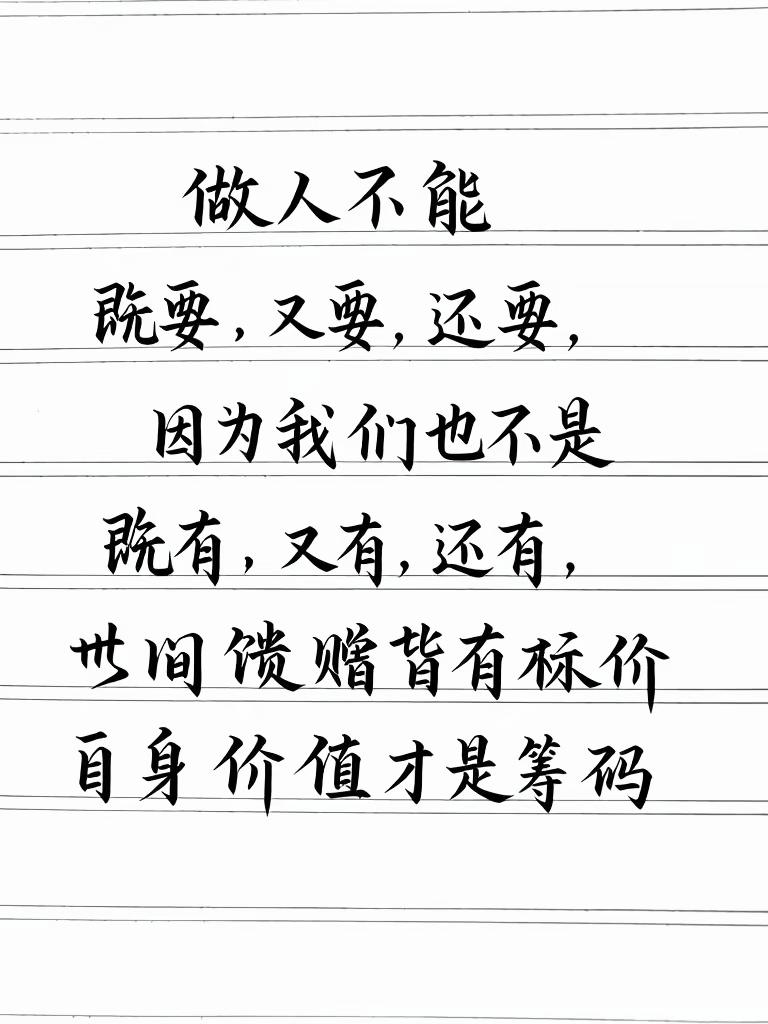 做人不能
既要，又要，还要，
因为我们也不是
既有，又有，还有，
世间馈赠皆有标价
自身价值才是筹码